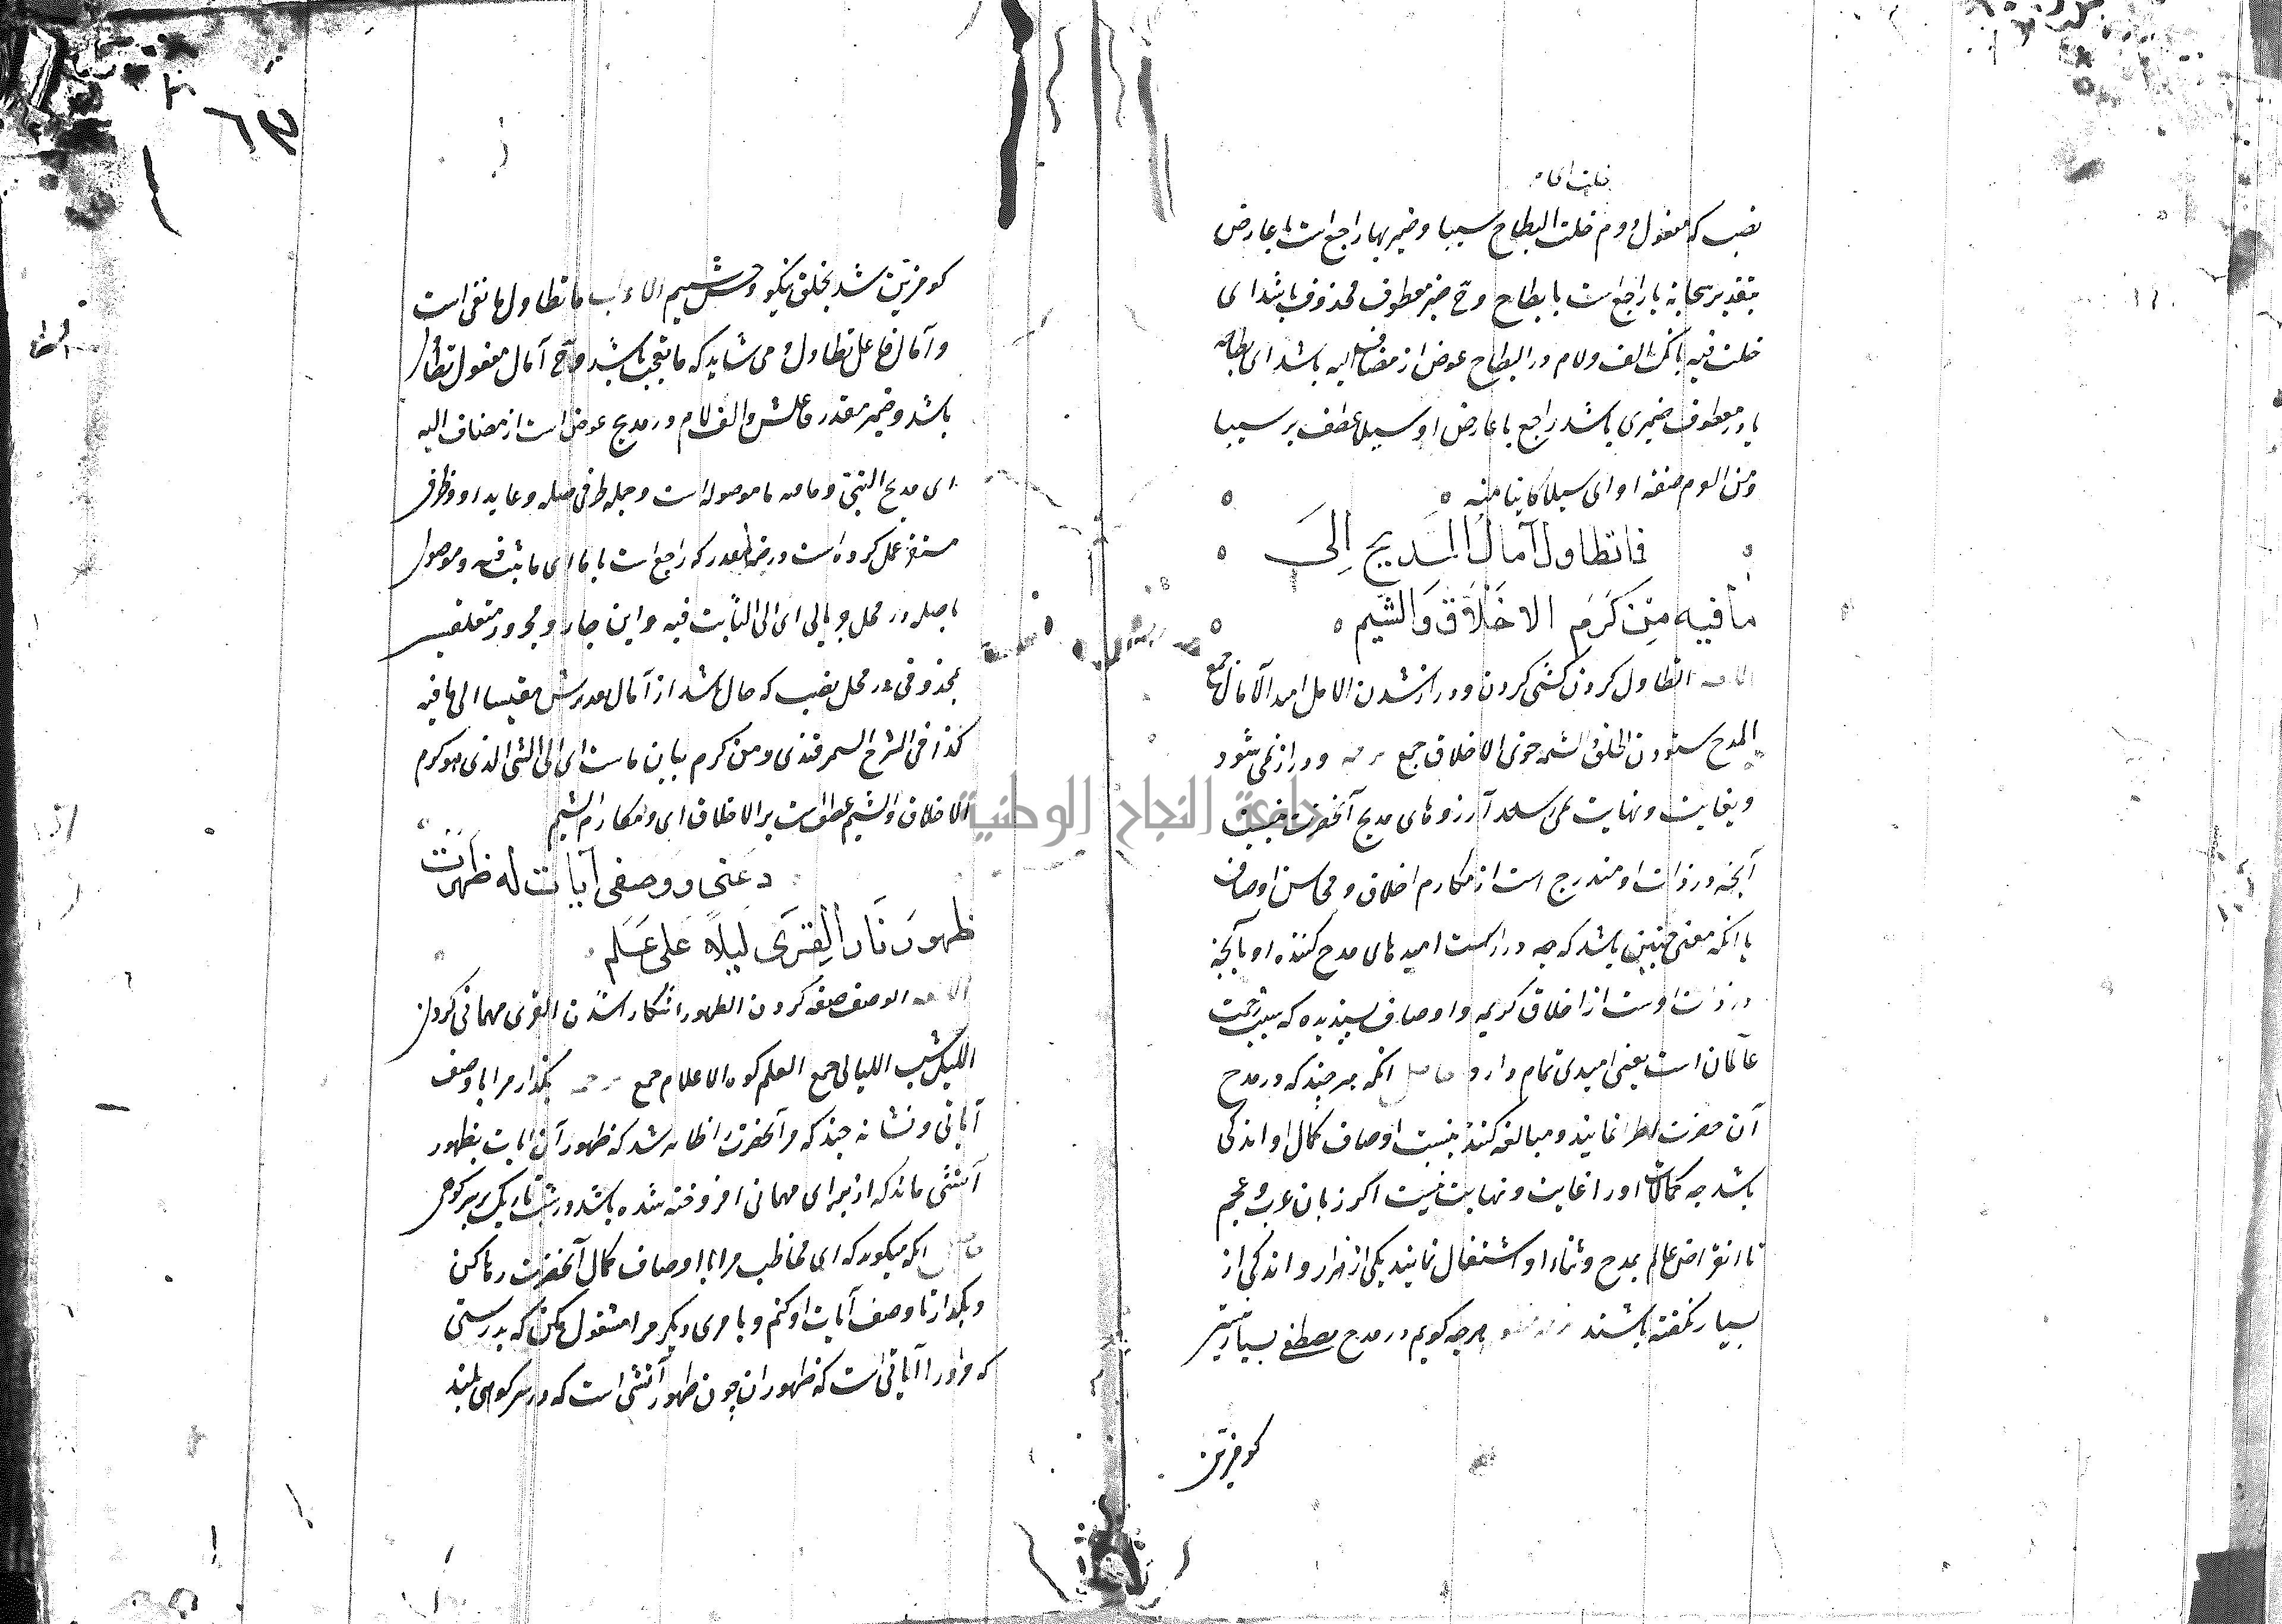 خلت ای ام
نصب که مفعول دوم خلت البطاح سیبا وضمیر بها راجع است با عارض
بتقدیر سحابة یا راجع است با بطاح وح ضمیر معطوف محذوف باشد ای
خلت فیه یا آنکه الف ولام در البطاح عوض از مضاف الیه باشد ای بطاحه
یا در معطوف ضمیری باشد راجع با عارض او سیلا عطف بر سیبا
ومن العرم صفه او ای سیلا کاینا منه
فما تطاول آمال المدیح الی
ما فیه من کرم الاخلاق والشیم
اللغه التطاول کردن کشی کردن ودراز شدن الامل امید الآمال جمع
المدح ستودن الخلق والشیمه خوی الاخلاق جمع ترجمه دراز نمی شود
وبغایت ونهایت نمی رسد آرزوهای مدیح آنحضرت بنسبت
آنچه در ذات او مندرج است از مکارم اخلاق ومحاسن اوصاف
یا انکه معنی چنین باشد که چه درازست امیدهای مدح کننده او بآنچه
در ذات اوست از اخلاق کریمه واوصاف پسندیده که سبب رحمت
عالمیان است یعنی امیدی تمام دارد حاصل انکه هر چند که در مدح
آن حضرت اطرا نمایند ومبالغه کنند بنسبت اوصاف کمال او اندکی
باشد چه کمالات اورا غایت ونهایت نیست اکر زبان عرب وعجم
تا انقراض عالم بمدح وثناء او اشتغال نمایند یکی از هزار واندکی از
بسیار نگفته باشند هرچه کویم در مدح مصطفی بسیار نیست
کو مزین
کو مزین شد بخلق نیکو وخوش شیم الاعراب ما تطاول ما نفی است
وآمال فاعل تطاول ومی شاید که ما تعجب باشد وح آمال مفعول تطاول
باشد وضمیر مقدر فاعلش والف لام در مدیح عوض است از مضاف الیه
ای مدیح النبی وما فیه ما موصوله است وجمله ظرفی صله وعاید او وظرف
مستقر عمل کرده است در ضمیر مقدر که راجع است با ما ای ما ثبت فیه وموصول
با صله در محل جر بالی ای الی الثابت فیه واین جار ومجرور متعلقست
بمحذوفی در محل نصب که حال باشد از آمال تقدیرش مقیسا الی ما فیه
کذا فی الشرح السمرقندی ومن کرم بیان ما است ای الی الشئ الذی هو کرم
الاخلاق والشیم عطف است بر الاخلاق ای ومکارم الشیم
دعنی ووصفی آیات له ظهرت
ظهور نار القری لیلا علی علم
اللغه الوصف صفه کردن الظهور آشکارا شدن القری مهمانی کردن
اللیل شب اللیالی جمع العلم کوه الاعلام جمع ترجمه بگذار مرا با وصف
آیاتی ونشانه چند که مر آنحضرت را ظاهر شد که ظهور آن آیات بظهور
آتشی ماند که از برای مهمانی افروخته شده باشد در شب تاریک بر سر کوهی
حاصل انکه میکوید که ای مخاطب مرا با اوصاف کمال آنحضرت رها کن
وبگذار تا وصف آیات او کنم وبا مری دیگر مرا مشغول مکن که بدرستی
که مر اورا آیاتی است که ظهور ان چون ظهور آتشی است که در سر کوهی بلند
جامعة النجاح الوطنية